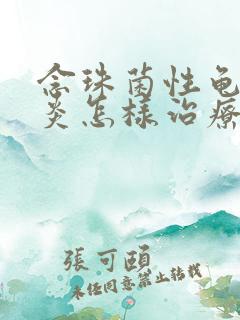 念珠菌性龟
炎怎樣治療
張可頤
未经同意禁止转载